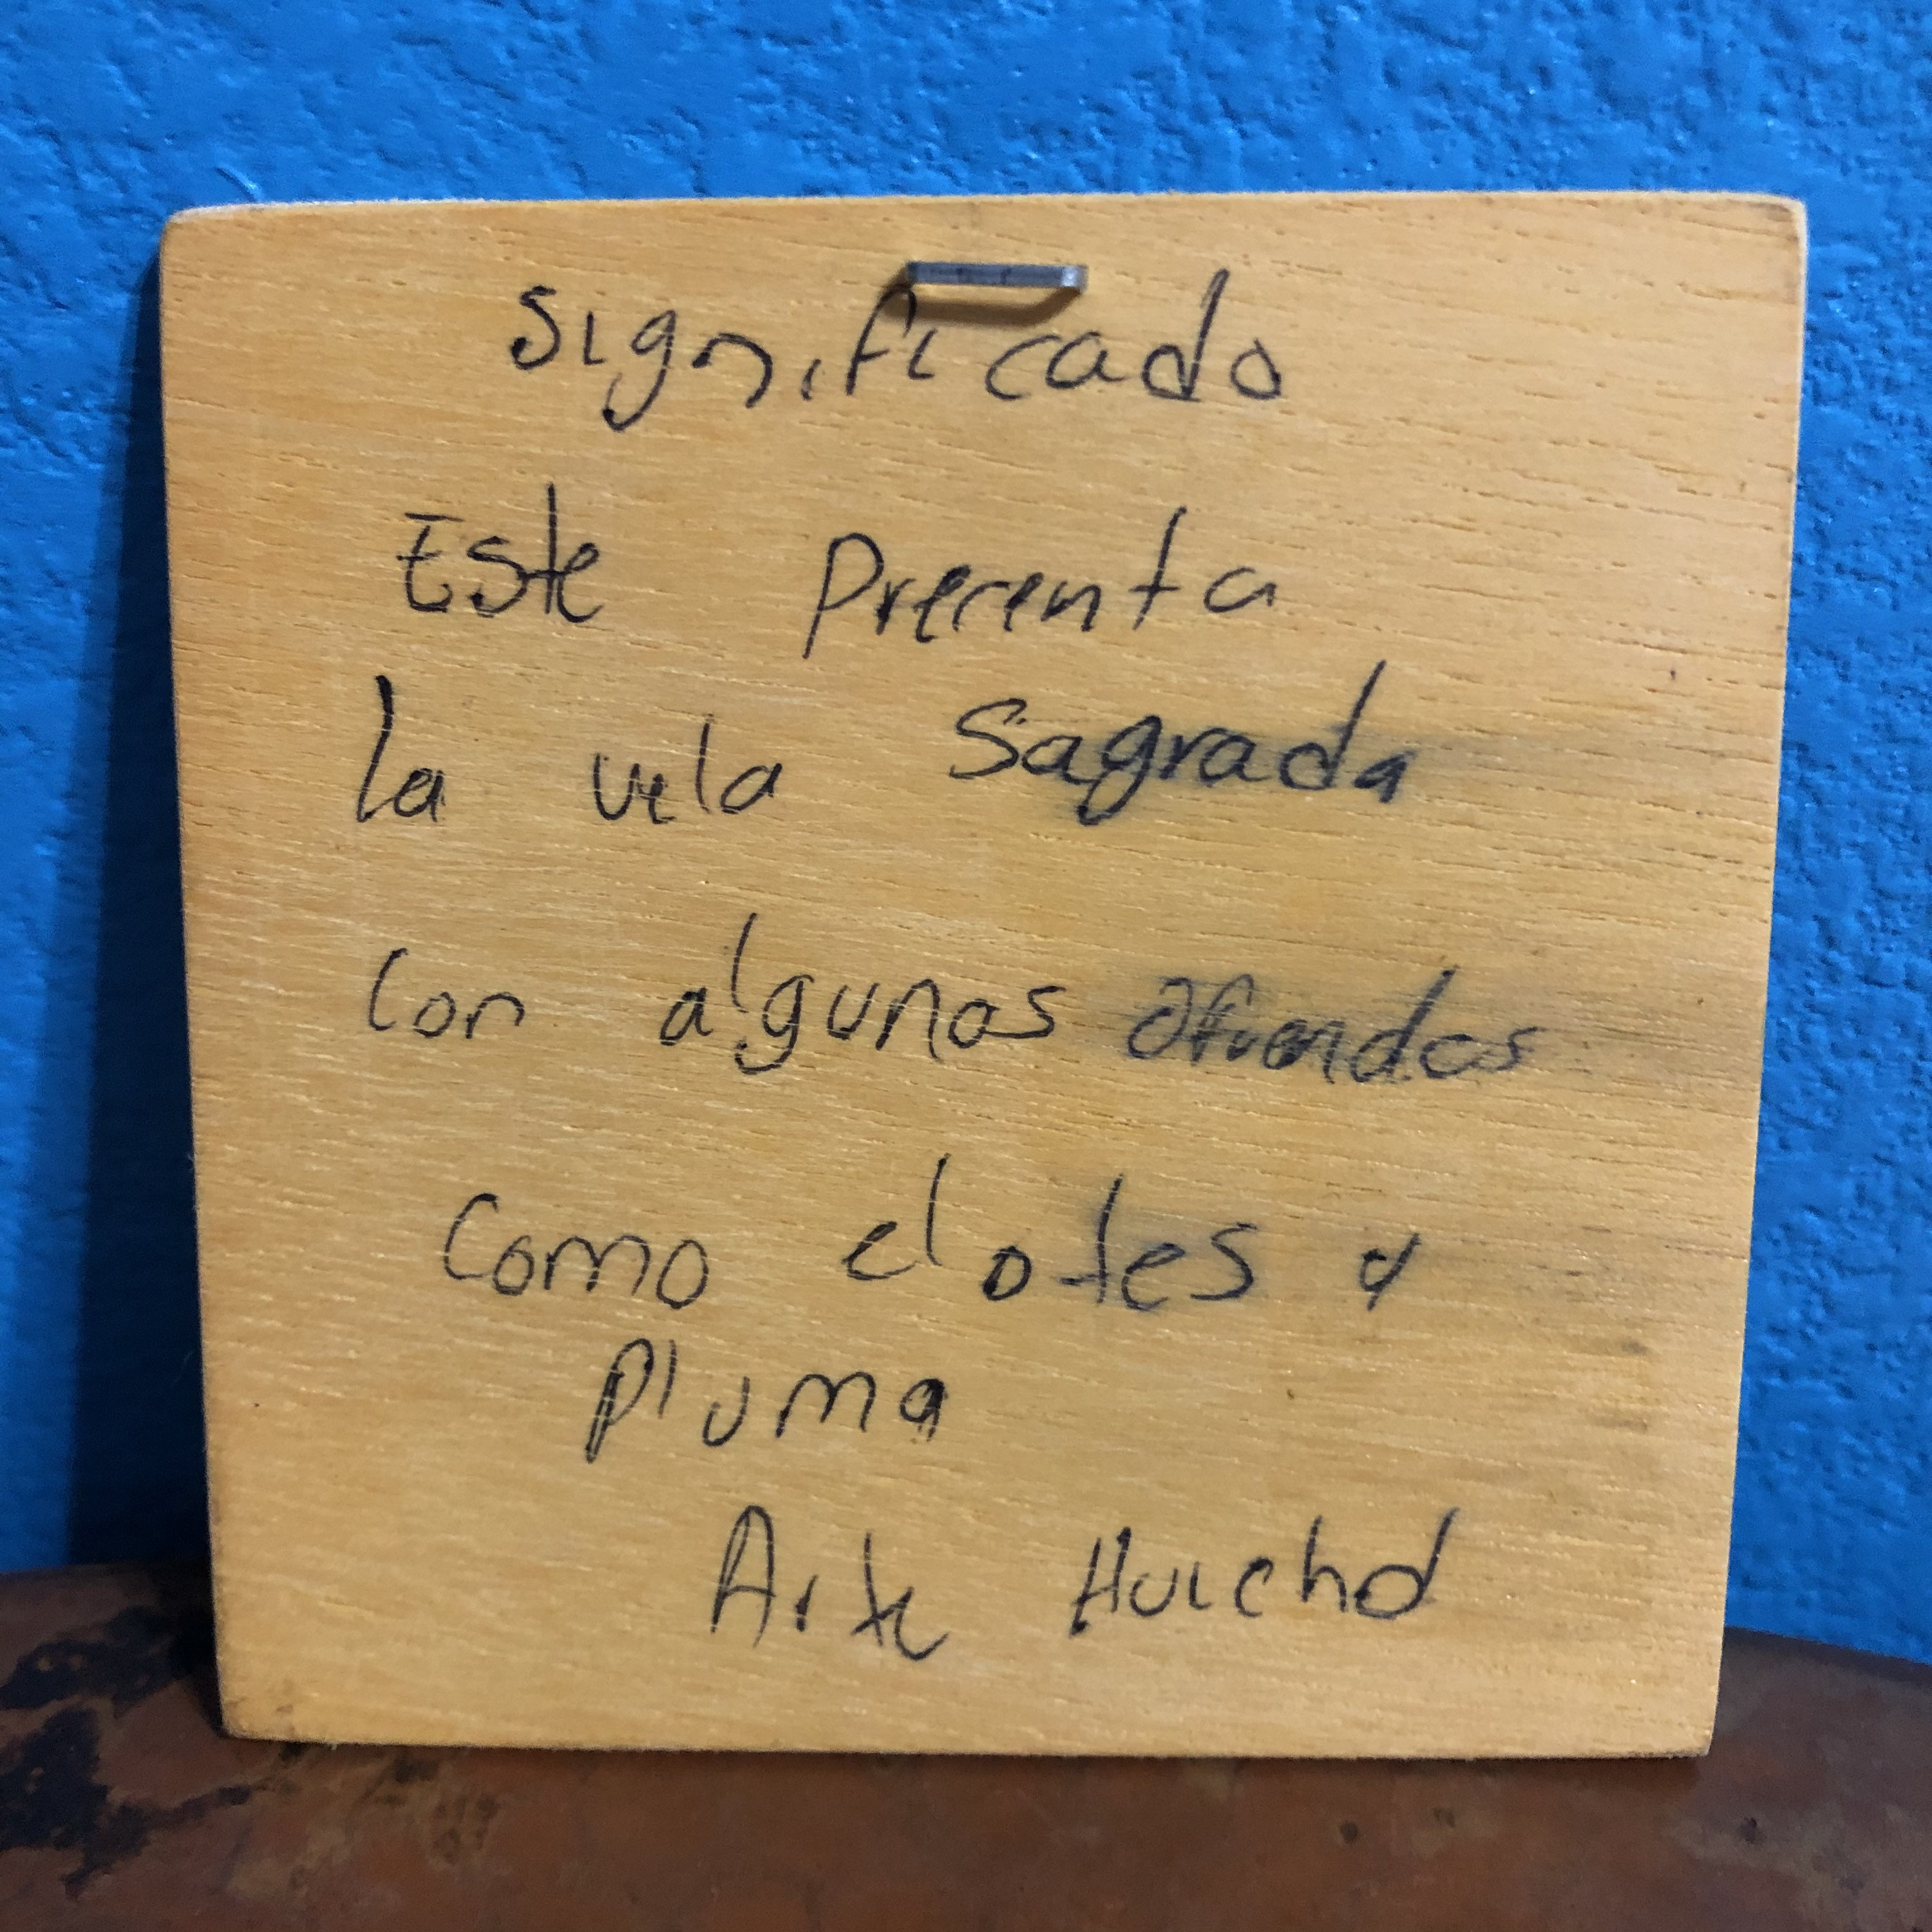 Significado
Este precenta
la vela Sagrada
Con algunas Ofrendas
Como elotes y
Pluma
Arte Huichol